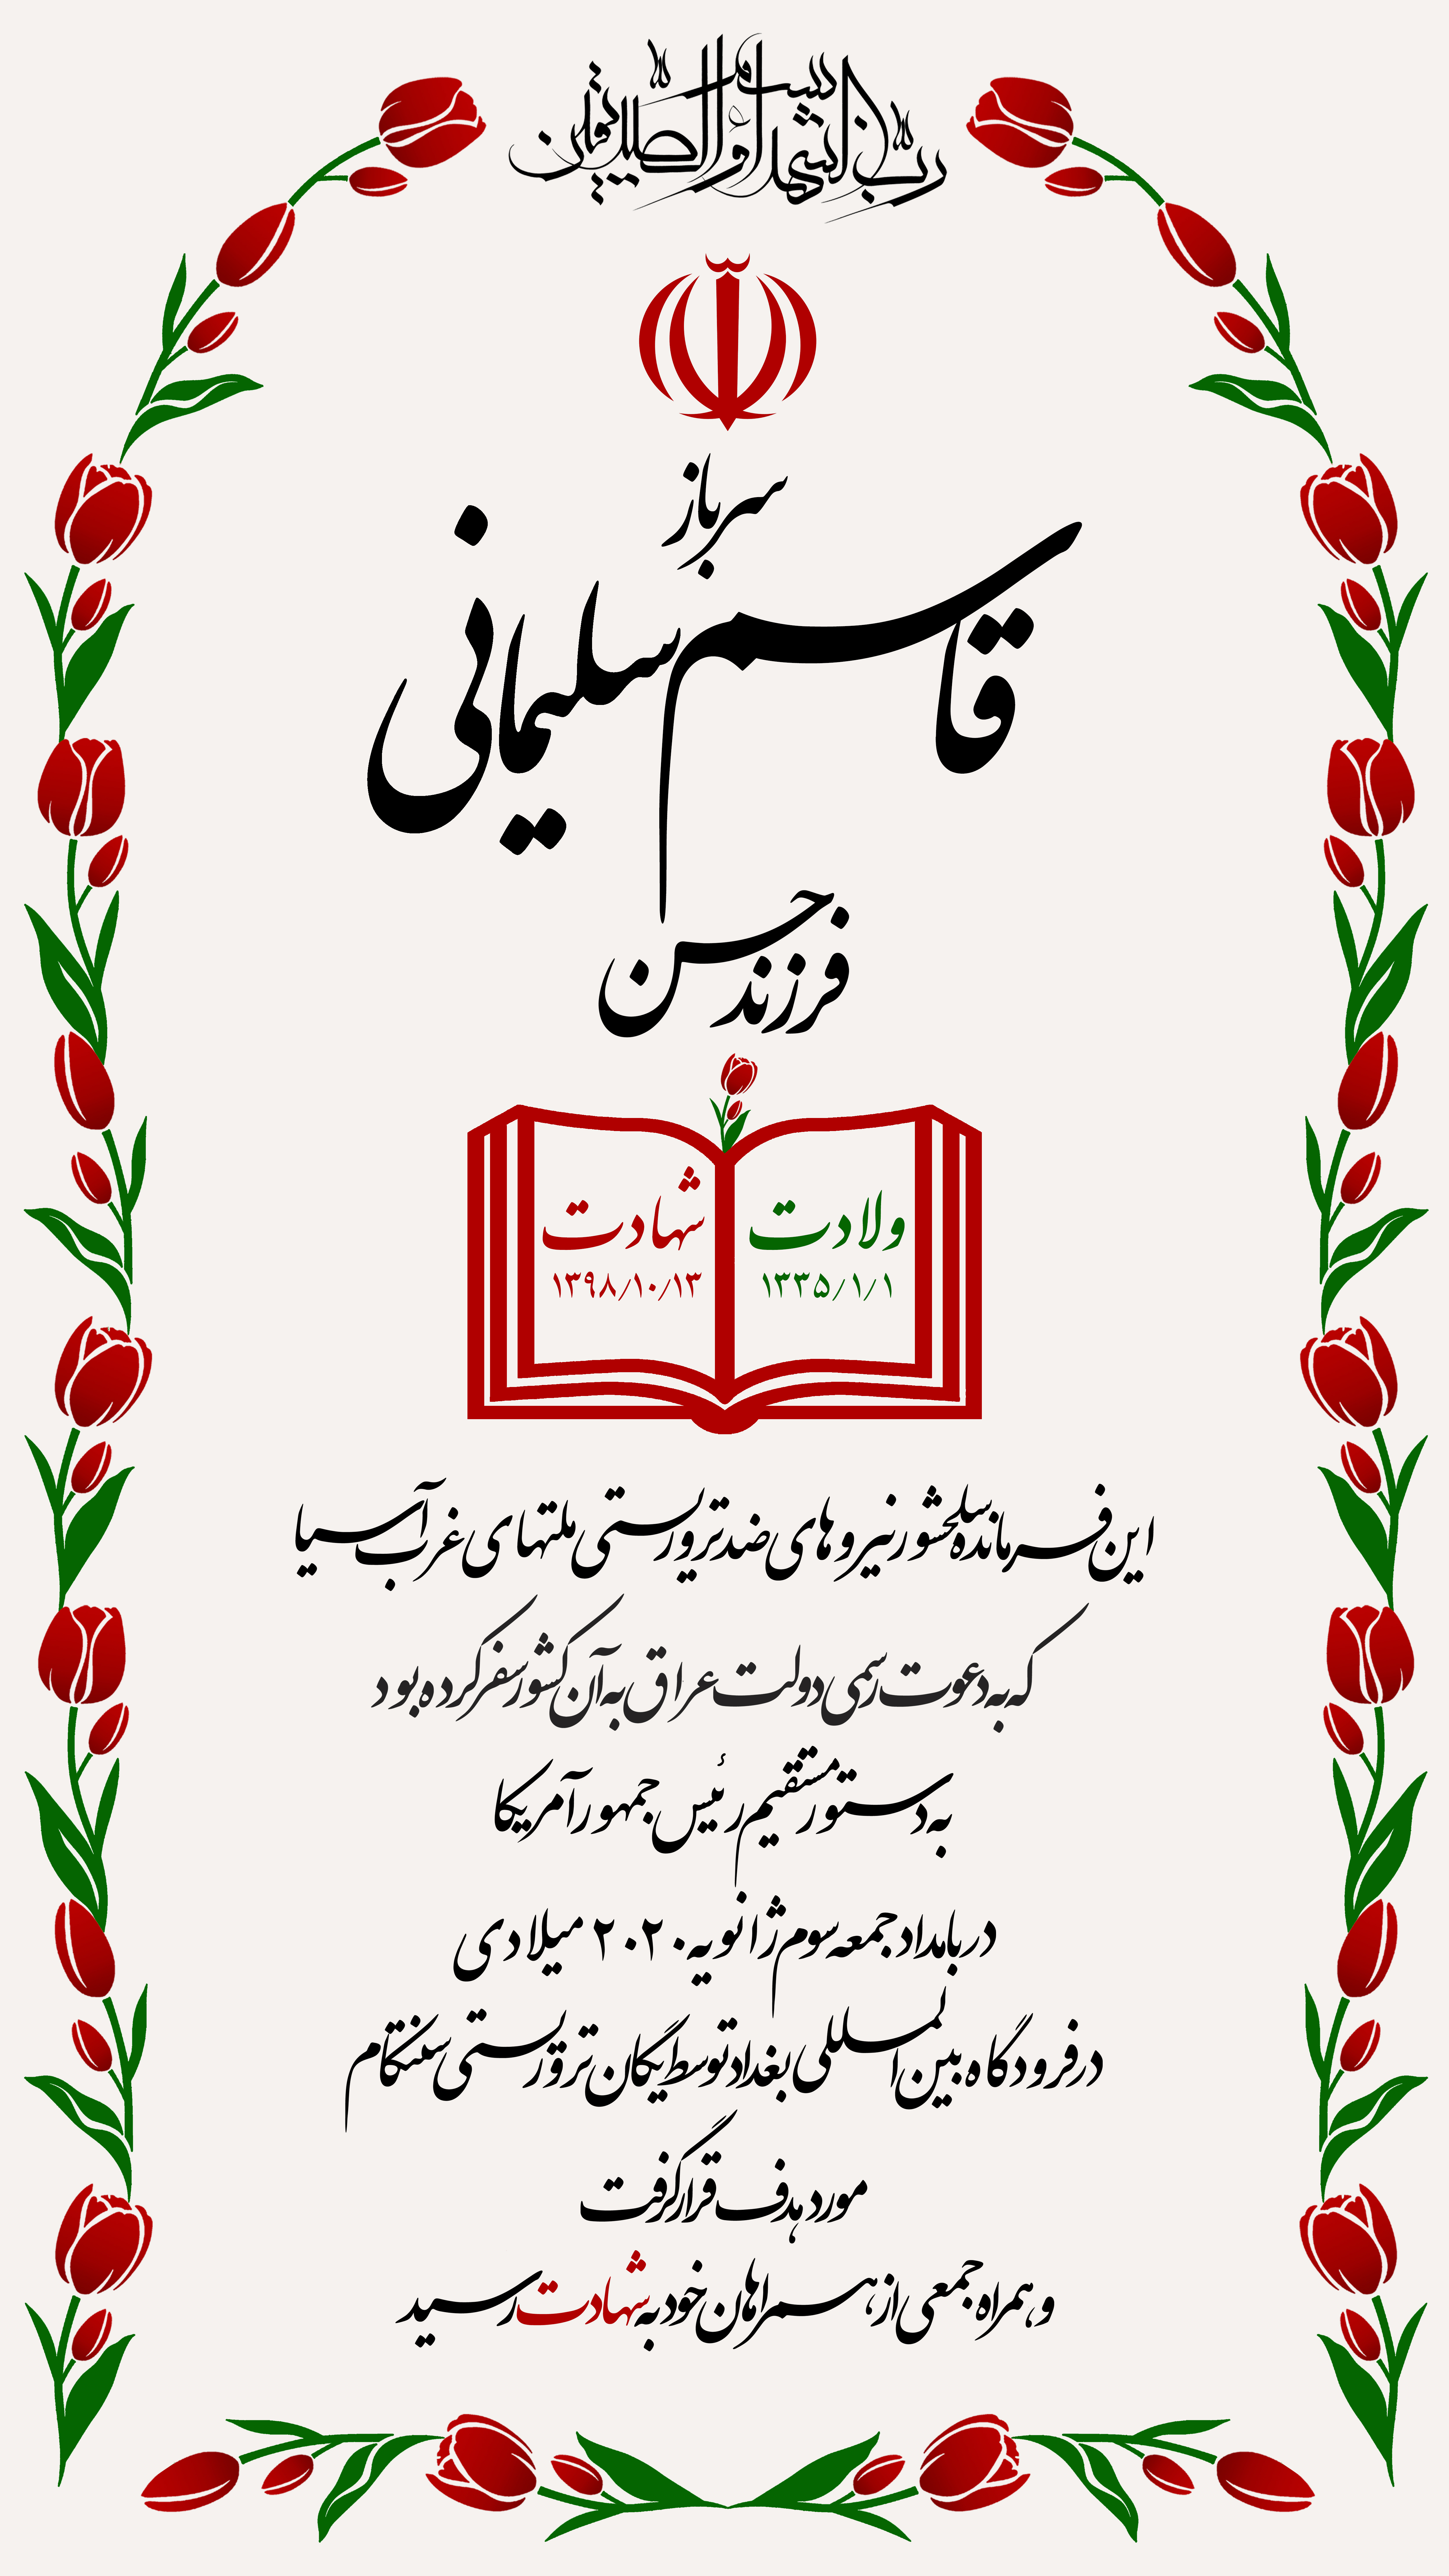 بسم الله
رب الشهداء و الصدیقین
سرباز
قاسم سلیمانی
فرزند حسن
ولادت
۱۳۳۵/۱/۱
شهادت
۱۳۹۸/۱۰/۱۳
این فرمانده سلحشور نیروهای ضد تروریستی ملتهای غرب آسیا
که به دعوت رسمی دولت عراق به آن کشور سفر کرده بود
به دستور مستقیم رئیس جمهور آمریکا
در بامداد جمعه سوم ژانویه ۲۰۲۰ میلادی
در فرودگاه بین المللی بغداد توسط یگان تروریستی سنتکام
مورد هدف قرار گرفت
و همراه جمعی از همراهان خود به شهادت رسید